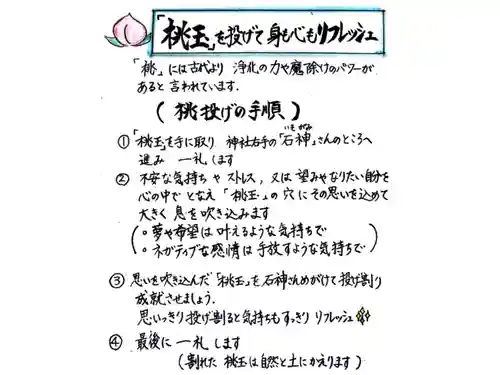 「桃玉」を投げて身も心もリフレッシュ
「桃」には古代より 浄化の力や魔除けのパワーが
あると言われています.
(桃投げの手順)
①「桃玉」を手に取り 神社右手の「石神」さんのところへ
いしがみ
進み 一礼します
② 不安な気持ちやストレス, 又は 望みやなりたい自分を
心の中で となえ 「桃玉」の穴にその思いを込めて
大きく 息を吹き込みます
(。夢や希望は叶えるような気持ちで
。ネガティブな感情は 手放すような気持ちで)
③ 思いを吹き込んだ「桃玉」を石神さんめがけて投げ割り
成就させましょう.
思いっきり投げ割ると気持ちもすっきり リフレッシュ
④ 最後に 一礼 します
(割れた 桃玉は自然と土にかえります)